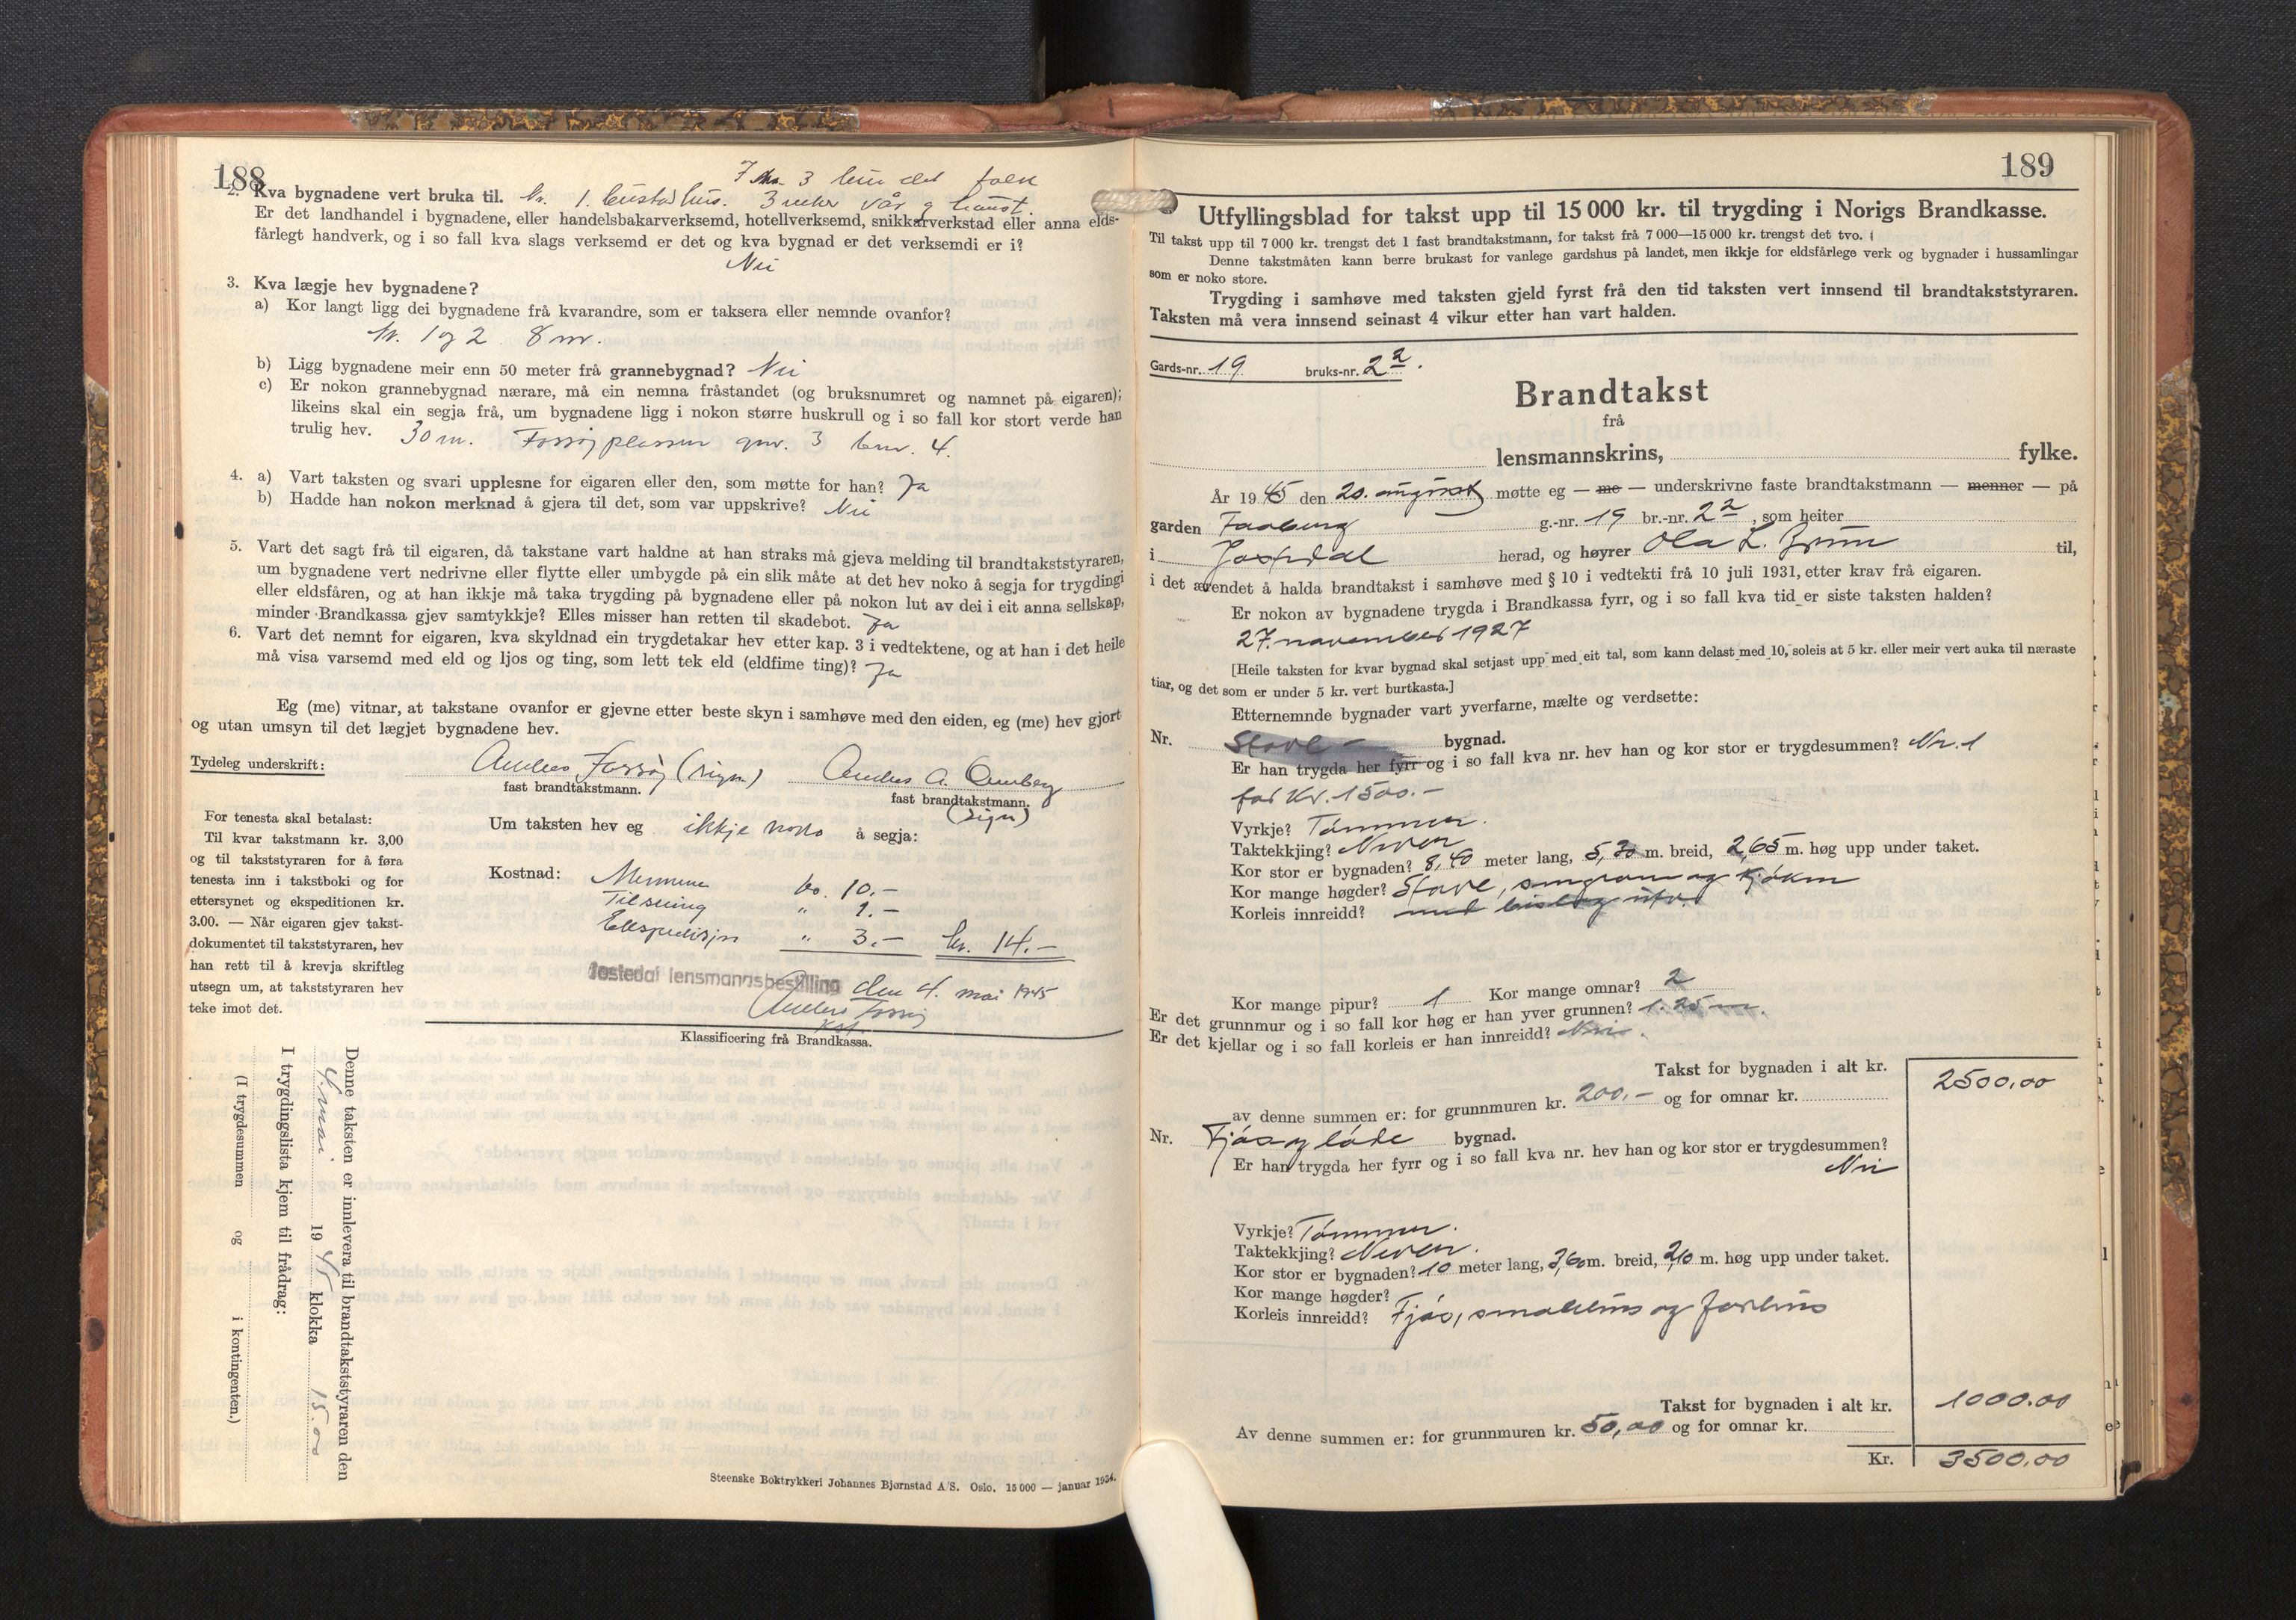 188
I nr. 3 bur det folk
2. Kva bygnadene vert bruka til. Nr. 1. bustadhus. 3 veker vår og haust.
Er det landhandel i bygnadene, eller handelsbakarverksemd, hotellverksemd, snikkarverkstad eller anna elds-
fårlegt handverk, og i so fall kva slags verksemd er det og kva bygnad er det verksemdi er i?
Nei
3. Kva lægje hev bygnadene?
a) Kor langt ligg dei bygnadene frå kvarandre, som er taksera eller nemnde ovanfor?
Nr. 1 og 2 8 m.
b) Ligg bygnadene meir enn 50 meter frå grannebygnad? Nei
c) Er nokon grannebygnad nærare, må ein nemna fråstandet (og bruksnumret og namnet på eigaren);
likeins skal ein segja frå, um bygnadene ligg i nokon større huskrull og i so fall kor stort verde han
trulig hev. 30 m. Fossøyplassen gnr. 3 bnr. 4.
4. a) Vart taksten og svari upplesne for eigaren eller den, som møtte for han? Ja
b) Hadde han nokon merknad å gjera til det, som var uppskrive? Nei
5. Vart det sagt frå til eigaren, då takstane vart haldne at han straks må gjeva melding til brandtakststyraren,
um bygnadene vert nedrivne eller flytte eller umbygde på ein slik måte at det hev noko å segja for trygdingi
eller eldsfåren, og at han ikkje må taka trygding på bygnadene eller på nokon lut av dei i eit anna sellskap,
minder Brandkassa gjev samtykkje? Elles misser han retten til skadebot. Ja
6. Vart det nemnt for eigaren, kva skyldnad ein trygdetakar hev etter kap. 3 i vedtektene, og at han i det heile
må visa varsemd med eld og ljos og ting, som lett tek eld (eldfime ting)? Ja
Eg (me) vitnar, at takstane ovanfor er gjevne etter beste skyn i samhøve med den eiden, eg (me) hev gjort
og utan umsyn til det lægjet bygnadene hev.
Tydeleg underskrift: Anders Fossøy (sign) Anders A.
fast brandtakstmann. fast brandtakstmann.
(sign)
For tenesta skal betalast:
Til kvar takstmann kr. 3,00
og til takststyraren for å føra
tenesta inn i takstboki og for
ettersynet og ekspeditionen kr.
3.00. — Når eigaren gjev takst-
dokumentet til takststyraren, hev
han rett til å krevja skriftleg
utsegn um, at takststyraren hev
teke imot det.
Um taksten hev eg ikkje noko å segja:
Kostnad: Mennene kr. 10.-
" 1.-
Ekspedisjon " 3.- kr. 14.-
Jostedal lensmannsbestilling den 4. mai 1945
Anders Fossøy
Kst.
Klassificering frå Brandkassa.
Denne taksten er innlevera til brandtakststyraren den
4 mai 1945 klokka 15.00
I trygdingslista kjem til frådrag:
(I trygdesummen og i kontingenten.)
Steenske Boktrykkeri Johannes Bjørnstad A/S. Oslo. 15 000 — januar 1934.
189
Utfyllingsblad for takst upp til 15 000 kr. til trygding i Norigs Brandkasse.
Til takst upp til 7 000 kr. trengst det 1 fast brandtakstmann, for takst frå 7 000—15 000 kr. trengst det tvo.
Denne takstmåten kann berre brukast for vanlege gardshus på landet, men ikkje for eldsfårlege verk og bygnader i hussamlingar
som er noko store.
Trygding i samhøve med taksten gjeld fyrst frå den tid taksten vert innsend til brandtakststyraren.
Taksten må vera innsend seinast 4 vikur etter han vart halden.
Gards-nr. 19 bruks-nr. 2²
Brandtakst
frå
lensmannskrins, fylke.
År 1945 den 20. august møtte eg — me — underskrivne faste brandtakstmann — menner — på
garden Faaberg g.-nr. 19 br.-nr. 2², som heiter
i Jostedal herad, og høyrer Ola L. til,
i det ærendet å halda brandtakst i samhøve med § 10 i vedtekti frå 10 juli 1931, etter krav frå eigaren.
Er nokon av bygnadene trygda i Brandkassa fyrr, og i so fall kva tid er siste taksten halden?
27. november 1927
[Heile taksten for kvar bygnad skal setjast upp med eit tal, som kann delast med 10, soleis at 5 kr. eller meir vert auka til næraste
tiar, og det som er under 5 kr. vert burtkasta.]
Etternemnde bygnader vart yverfarne, mælte og verdsette:
Nr. Stove - bygnad.
Er han trygda her fyrr og i so fall kva nr. hev han og kor stor er trygdesummen? Nr. 1
for Kr. 1500.-
Vyrkje? Tømmer.
Taktekkjing? Never
Kor stor er bygnaden? 8,40 meter lang, 5,30 m. breid, 2,65 m. høg upp under taket.
Kor mange høgder? Stove, sengrom og kjøken
Korleis innreidd? med bislag utv.
Kor mange pipur? 1 Kor mange omnar? 2
Er det grunnmur og i so fall kor høg er han yver grunnen? 1.25 m.
Er det kjellar og i so fall korleis er han innreidd? Nei.
Takst for bygnaden i alt kr. 2500,00
av denne summen er: for grunnmuren kr. 200,- og for omnar kr.
Nr. Fjøs og løde bygnad.
Er han trygda her fyrr og i so fall kva nr. hev han og kor stor er trygdesummen?
Nei
Vyrkje? Tømmer.
Taktekkjing? Never.
Kor stor er bygnaden? 10 meter lang, 3,60 m. breid, 2,10 m. høg upp under taket.
Kor mange høgder?
Korleis innreidd? Fjøs, smalehus og forhus
Takst for bygnaden i alt kr. 1000.00
Av denne summen er: for grunnmuren kr. 50,00 og for omnar kr.
Kr. 3500.00